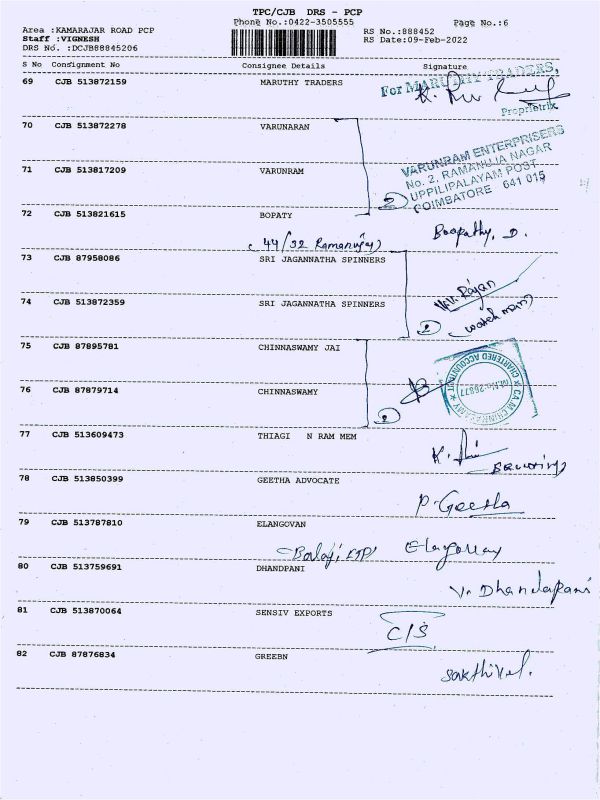 TPC/CJB DRS - PCP
Phone No.:0422-3505555
Page No.:6
Area :KAMARAJAR ROAD PCP
Staff :VIGNESH
DRS No. :DCJB88845206
RS No.:888452
RS Date:09-Feb-2022
S No Consignment No Consignee Details Signature
69 CJB 513872159 MARUTHY TRADERS
For MARUTHY TRADERS,
Proprietrix
70 CJB 513872278 VARUNARAN
VARUNRAM ENTERPRISERS
No. 2, RAMANUJA NAGAR
UPPILIPALAYAM POST
COIMBATORE 641 015
71 CJB 513817209 VARUNRAM
2
72 CJB 513821615 BOPATY
Boopathy, D.
44/32 Ramanujay)
73 CJB 87958086 SRI JAGANNATHA SPINNERS
Rajan
74 CJB 513872359 SRI JAGANNATHA SPINNERS
2 (watch man)
75 CJB 87895781 CHINNASWAMY JAI
CHARTERED ACCOUNTANT
76 CJB 87879714 CHINNASWAMY
2
77 CJB 513609473 THIAGI N RAM MEM
K.
78 CJB 513850399 GEETHA ADVOCATE
P. Geetha
79 CJB 513787810 ELANGOVAN
80 CJB 513759691 DHANDPANI
V. Dhandapani
81 CJB 513870064 SENSIV EXPORTS
C/S
82 CJB 87876834 GREEBN
Sakthivel.